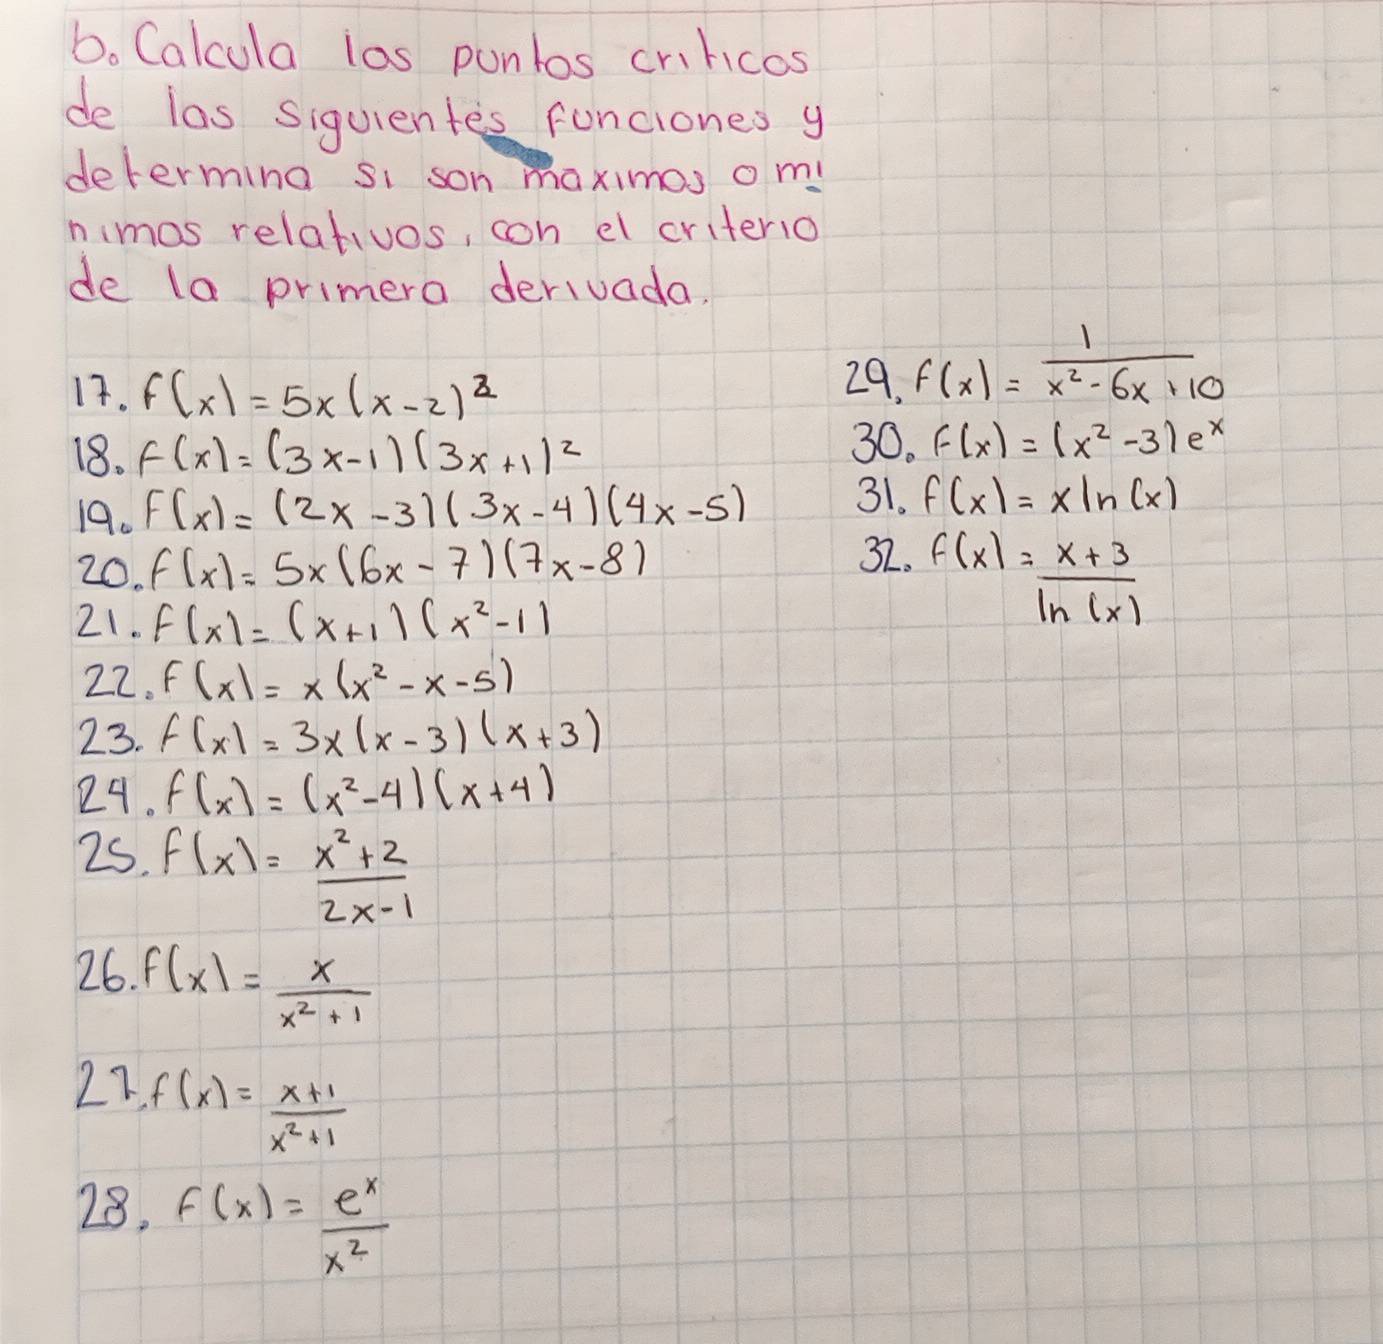 b. Calcula los puntos criticos
de las siguientes funciones y
determina si son maximos o mi
nimos relativos, con el criterio
de la primera derivada.
17. f(x) = 5x(x-2)²
18. f(x) = (3x-1)(3x+1)²
19. f(x) = (2x-3)(3x-4)(4x-5)
20. f(x) = 5x(6x-7)(7x-8)
21. f(x) = (x+1)(x²-1)
22. f(x) = x(x²-x-5)
23. f(x) = 3x(x-3)(x+3)
24. f(x) = (x²-4)(x+4)
25. f(x) = x²+2
2x-1
26. f(x) = x
x²+1
27. f(x) = x+1
x²+1
28. f(x) = eˣ
x²
1
29. f(x) = x²-6x+10
30. f(x) = (x²-3)eˣ
31. f(x) = x ln(x)
32. f(x) = x+3
ln(x)